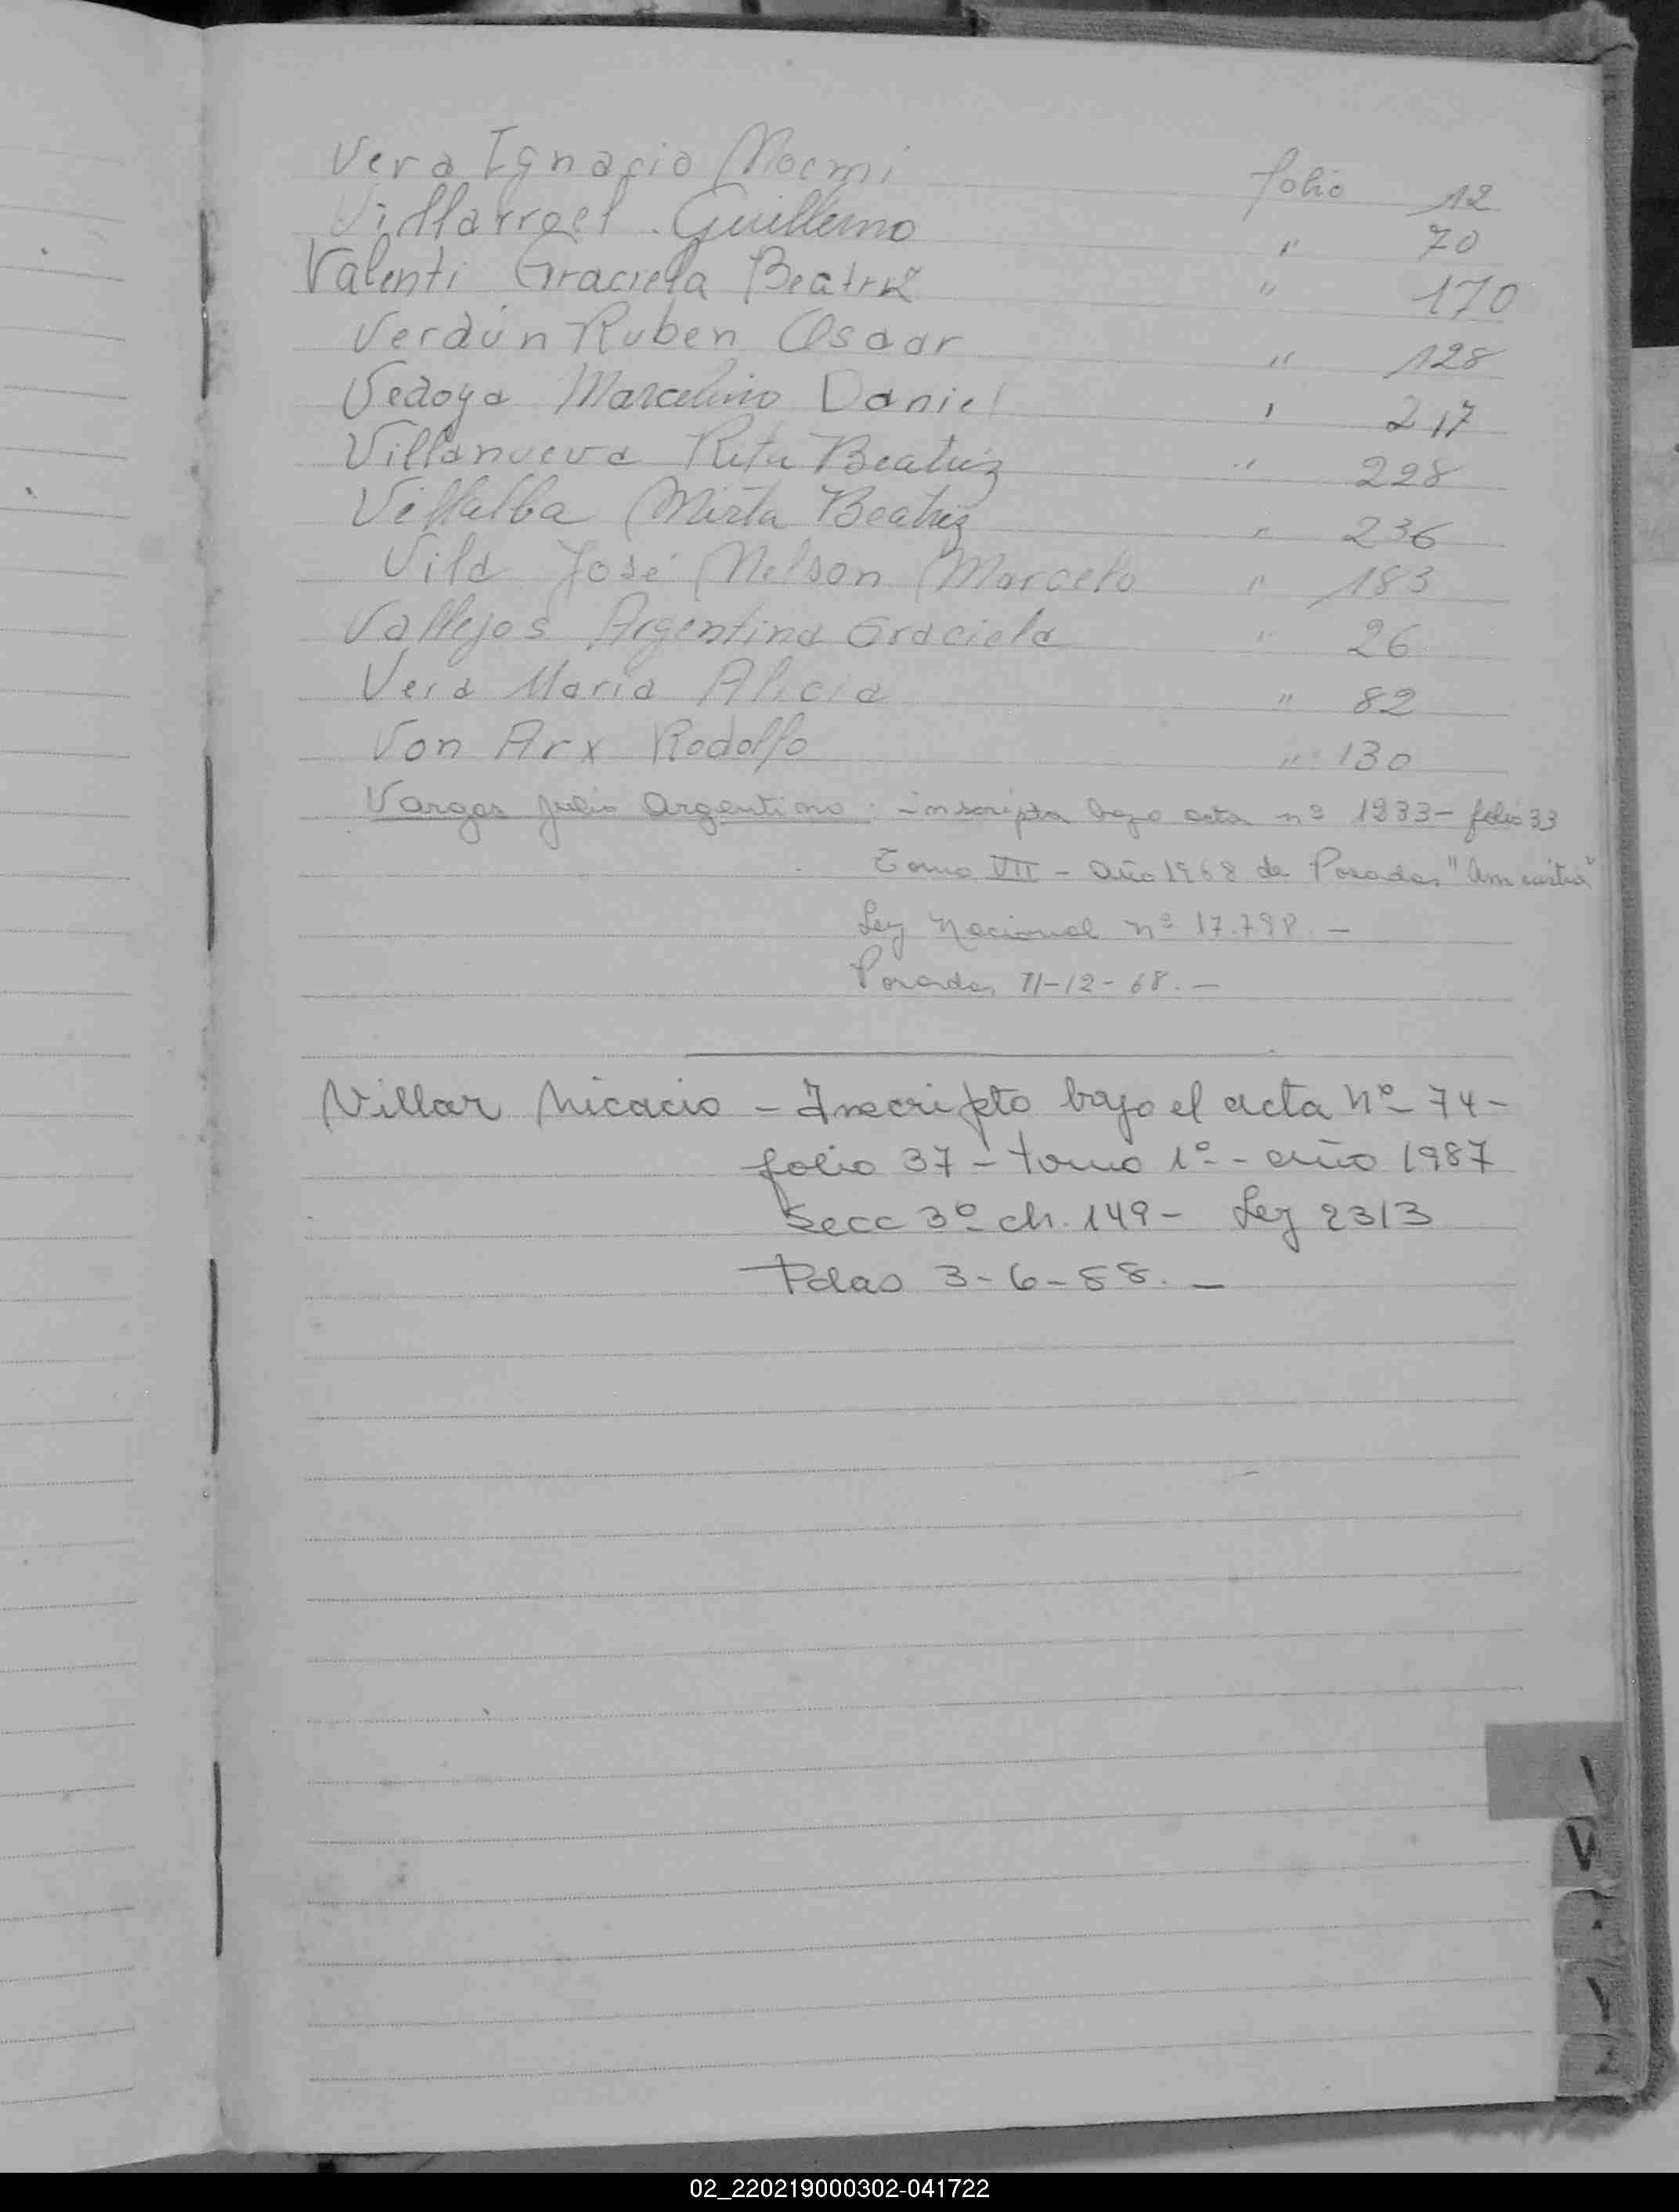 Vera Ignacio Noemi folio 12
Villarroel Guillermo " 70
Valenti Graciela Beatriz " 170
Verdún Ruben Oscar " 128
Vedoya Marcelino Daniel " 217
Villanueva Rita Beatriz " 228
Villalba Mirta Beatriz " 236
Vila José Nelson Marcelo " 183
Vallejos Argentina Graciela " 26
Vera Maria Alicia " 82
Von Arx Rodolfo " 130
Vargas Julio Argentino: inscripta bajo acta nº 1233- folio 33
Tomo VII - Año 1968 de Posadas "Amnistia"
Ley Nacional nº 17.798.-
Posadas, 11-12-68.-
Villar Nicacio - Inscripto bajo el acta Nº 74-
folio 37 - tomo 1º - año 1987
Secc 3º ch. 149- Ley 2313
Pdas 3-6-88.-
V
02_220219000302-041722